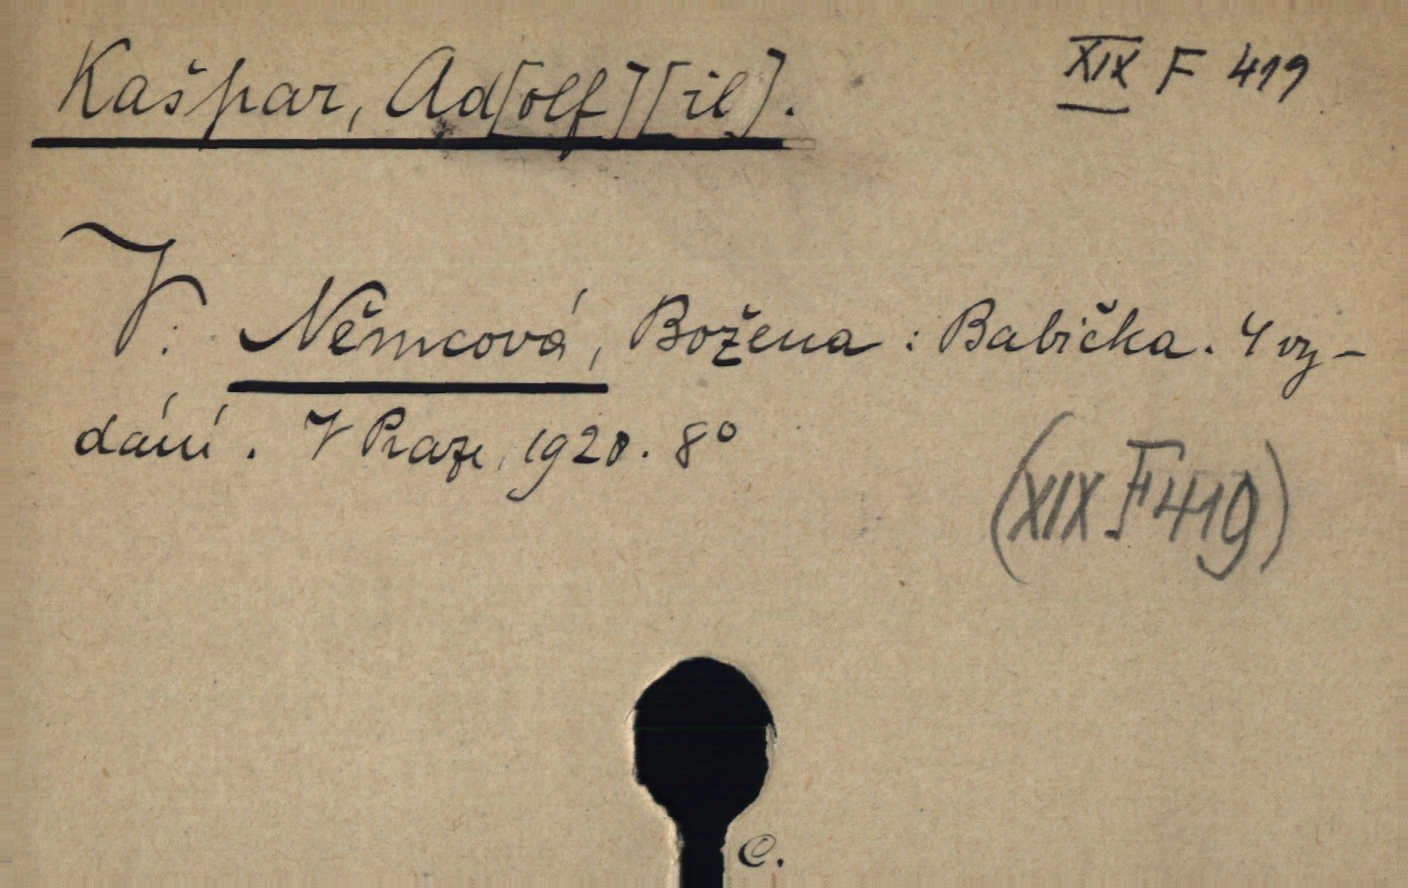 Kašpar, Ad[olf][il]. XIX F 419
V. Němcová, Božena : Babička. 4 vy-
dání. V Praze, 1920. 8°
(XIX F 419)
C.